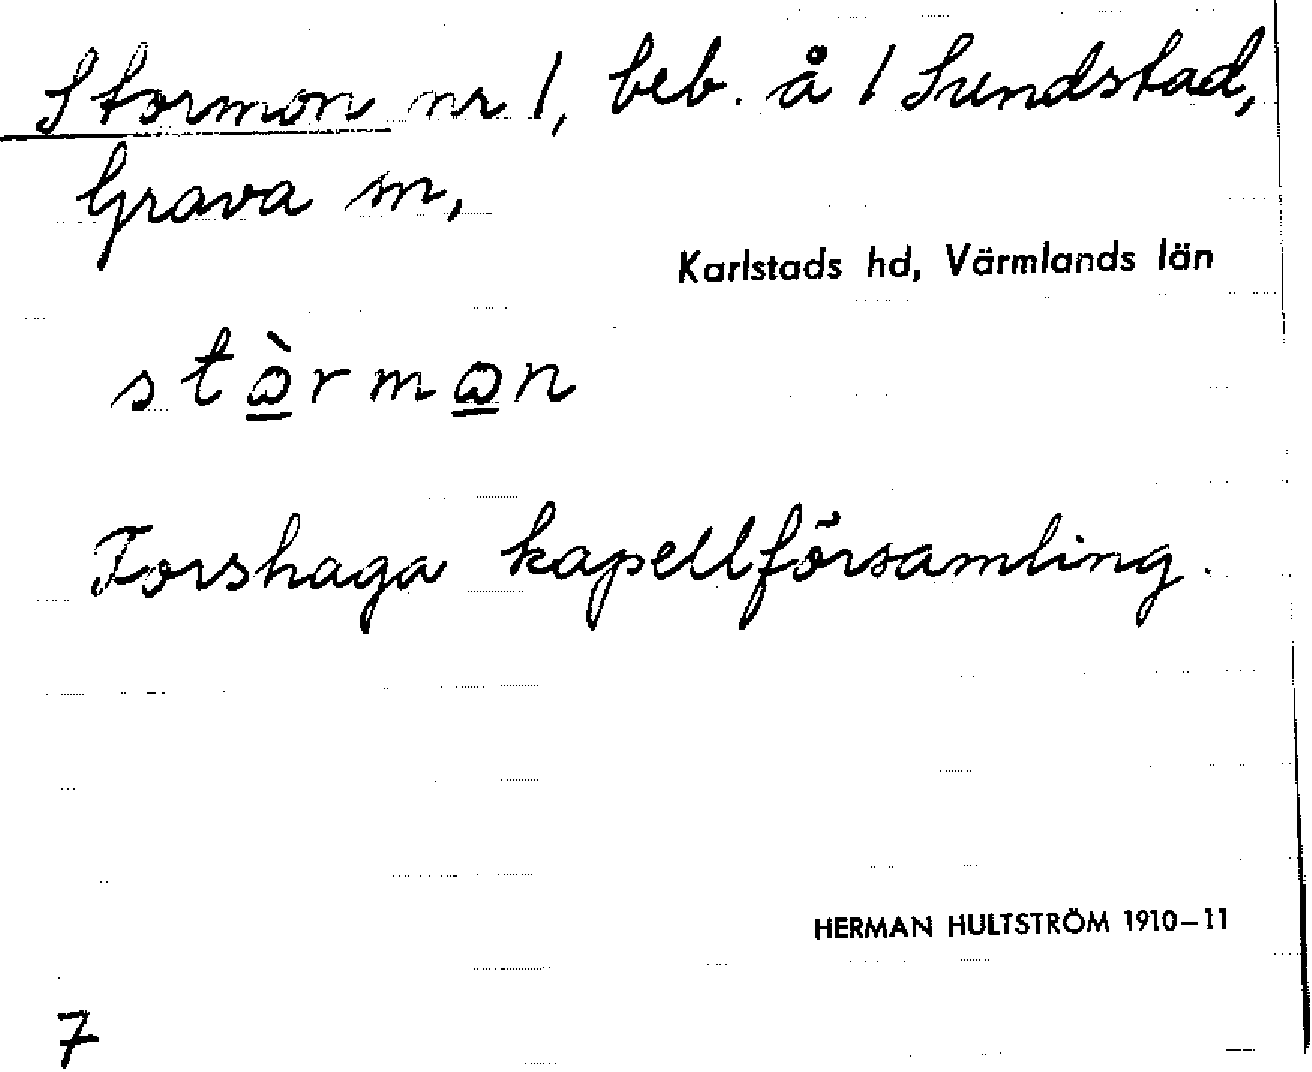 Stormon nr 1, beb. å 1 Sundstad,
Grava sn,
Karlstads hd, Värmlands län
stòrmon
Forshaga kapellförsamling.
HERMAN HULTSTRÖM 1910–11
7